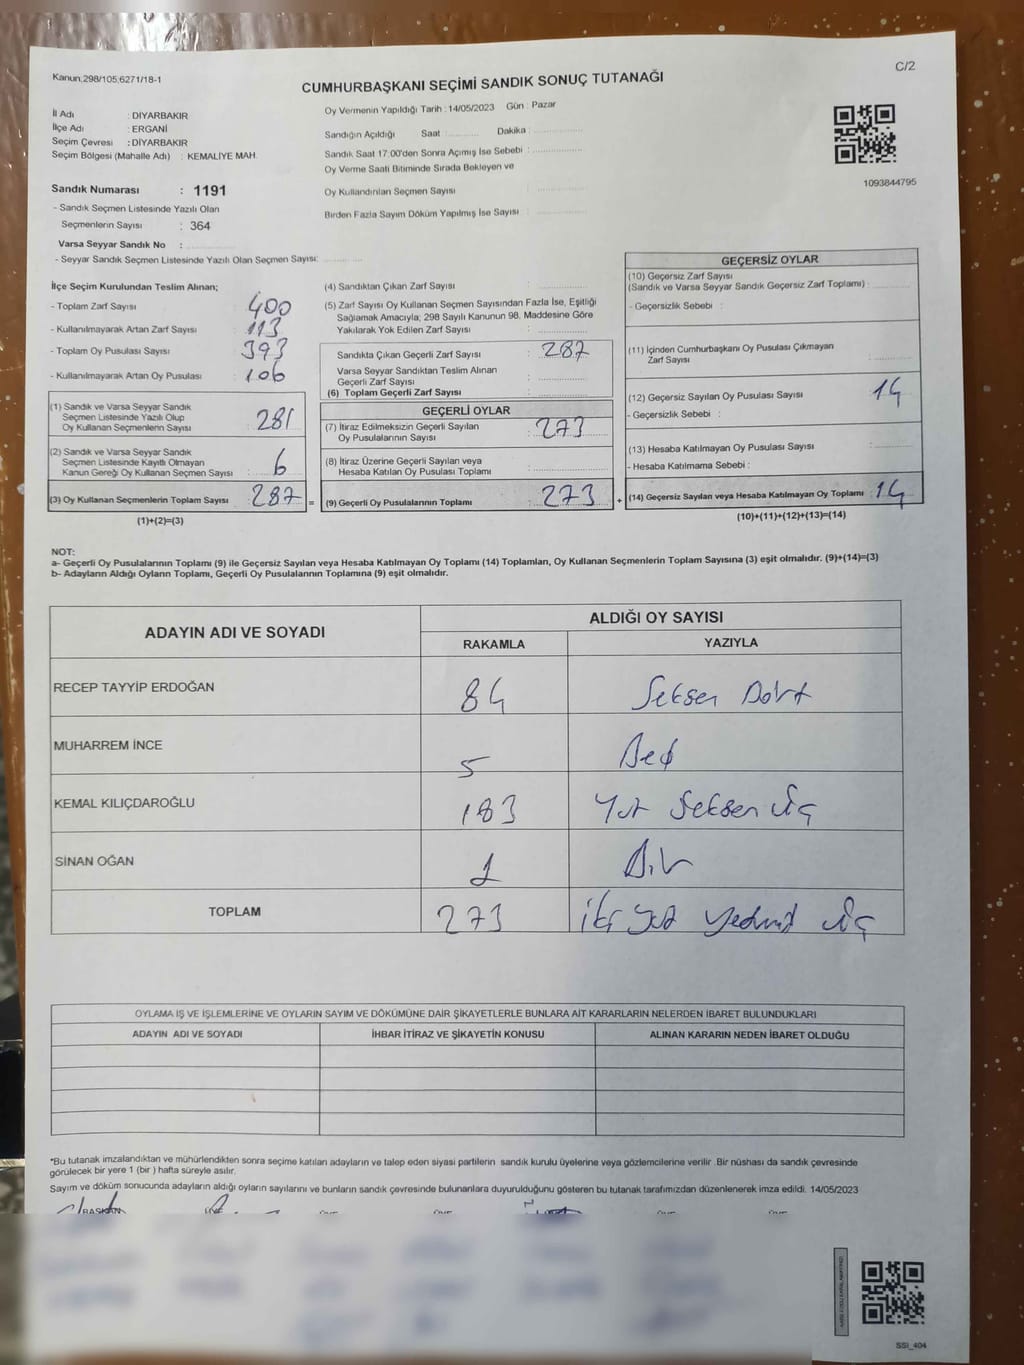 Kanun,298/105,6271/18-1
C/2
CUMHURBAŞKANI SEÇİMİ SANDIK SONUÇ TUTANAĞI
İl Adı : DİYARBAKIR
İlçe Adı : ERGANİ
Seçim Çevresi : DİYARBAKIR
Seçim Bölgesi (Mahalle Adı) : KEMALİYE MAH.
Oy Vermenin Yapıldığı Tarih : 14/05/2023 Gün : Pazar
Sandığın Açıldığı Saat : Dakika :
Sandık Saat 17:00'den Sonra Açımış İse Sebebi :
Oy Verme Saati Bitiminde Sırada Bekleyen ve
Oy Kullandırılan Seçmen Sayısı
Birden Fazla Sayım Döküm Yapılmış İse Sayısı
1093844795
Sandık Numarası : 1191
- Sandık Seçmen Listesinde Yazılı Olan
Seçmenlerin Sayısı : 364
Varsa Seyyar Sandık No :
- Seyyar Sandık Seçmen Listesinde Yazılı Olan Seçmen Sayısı:
İlçe Seçim Kurulundan Teslim Alınan;
- Toplam Zarf Sayısı : 400
- Kullanılmayarak Artan Zarf Sayısı : 113
- Toplam Oy Pusulası Sayısı : 393
- Kullanılmayarak Artan Oy Pusulası : 106
(1) Sandık ve Varsa Seyyar Sandık
Seçmen Listesinde Yazılı Olup
Oy Kullanan Seçmenlerin Sayısı : 281
(2) Sandık ve Varsa Seyyar Sandık
Seçmen Listesinde Kayıtlı Olmayan
Kanun Gereği Oy Kullanan Seçmen Sayısı : 6
(3) Oy Kullanan Seçmenlerin Toplam Sayısı : 287 =
(1)+(2)=(3)
(4) Sandıktan Çıkan Zarf Sayısı
(5) Zarf Sayısı Oy Kullanan Seçmen Sayısından Fazla İse, Eşitliği
Sağlamak Amacıyla; 298 Sayılı Kanunun 98. Maddesine Göre
Yakılarak Yok Edilen Zarf Sayısı
Sandıkta Çıkan Geçerli Zarf Sayısı : 287
Varsa Seyyar Sandıktan Teslim Alınan
Geçerli Zarf Sayısı
(6) Toplam Geçerli Zarf Sayısı
GEÇERLİ OYLAR
(7) İtiraz Edilmeksizin Geçerli Sayılan
Oy Pusulalarının Sayısı : 273
(8) İtiraz Üzerine Geçerli Sayılan veya
Hesaba Katılan Oy Pusulası Toplamı
(9) Geçerli Oy Pusulalarının Toplamı : 273 +
GEÇERSİZ OYLAR
(10) Geçersiz Zarf Sayısı
(Sandık ve Varsa Seyyar Sandık Geçersiz Zarf Toplamı) :
- Geçersizlik Sebebi :
(11) İçinden Cumhurbaşkanı Oy Pusulası Çıkmayan
Zarf Sayısı
(12) Geçersiz Sayılan Oy Pusulası Sayısı : 14
- Geçersizlik Sebebi :
(13) Hesaba Katılmayan Oy Pusulası Sayısı
- Hesaba Katılmama Sebebi :
(14) Geçersiz Sayılan veya Hesaba Katılmayan Oy Toplamı : 14
(10)+(11)+(12)+(13)=(14)
NOT:
a- Geçerli Oy Pusulalarının Toplamı (9) ile Geçersiz Sayılan veya Hesaba Katılmayan Oy Toplamı (14) Toplamları, Oy Kullanan Seçmenlerin Toplam Sayısına (3) eşit olmalıdır. (9)+(14)=(3)
b- Adayların Aldığı Oyların Toplamı, Geçerli Oy Pusulalarının Toplamına (9) eşit olmalıdır.
ADAYIN ADI VE SOYADI
ALDIĞI OY SAYISI
RAKAMLA YAZIYLA
RECEP TAYYİP ERDOĞAN 84 Seksen Dört
MUHARREM İNCE 5 Beş
KEMAL KILIÇDAROĞLU 183 Yüz Seksen üç
SİNAN OĞAN 1 Bir
TOPLAM 273 iki yüz yetmiş üç
OYLAMA İŞ VE İŞLEMLERİNE VE OYLARIN SAYIM VE DÖKÜMÜNE DAİR ŞİKAYETLERLE BUNLARA AİT KARARLARIN NELERDEN İBARET BULUNDUKLARI
ADAYIN ADI VE SOYADI İHBAR İTİRAZ VE ŞİKAYETİN KONUSU ALINAN KARARIN NEDEN İBARET OLDUĞU
*Bu tutanak imzalandıktan ve mühürlendikten sonra seçime katılan adayların ve talep eden siyasi partilerin sandık kurulu üyelerine veya gözlemcilerine verilir. Bir nüshası da sandık çevresinde
görülecek bir yere 1 (bir) hafta süreyle asılır.
Sayım ve döküm sonucunda adayların aldığı oyların sayılarını ve bunların sandık çevresinde bulunanlara duyurulduğunu gösteren bu tutanak tarafımızdan düzenlenerek imza edildi. 14/05/2023
BAŞKAN
SSI_404